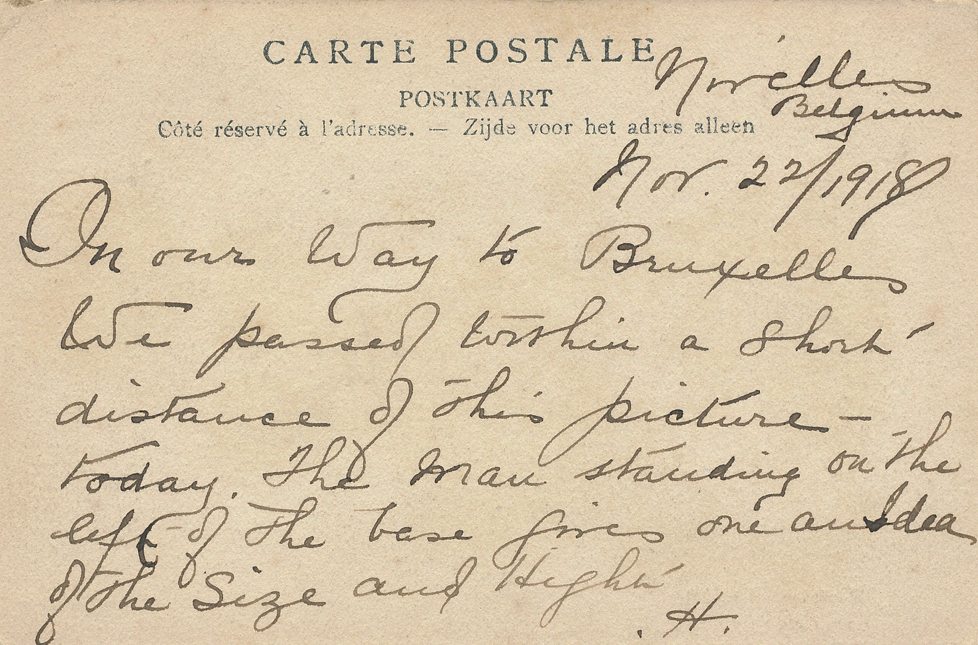 CARTE POSTALE
POSTKAART
Côté réservé à l'adresse. — Zijde voor het adres alleen
Novélles
Belgium
Nov. 22/1918
On our Way to Bruxelles
We passed within a short
distance of this picture —
today. The Man standing on the
left of the base gives one an Idea
of the Size and Hight
. H.